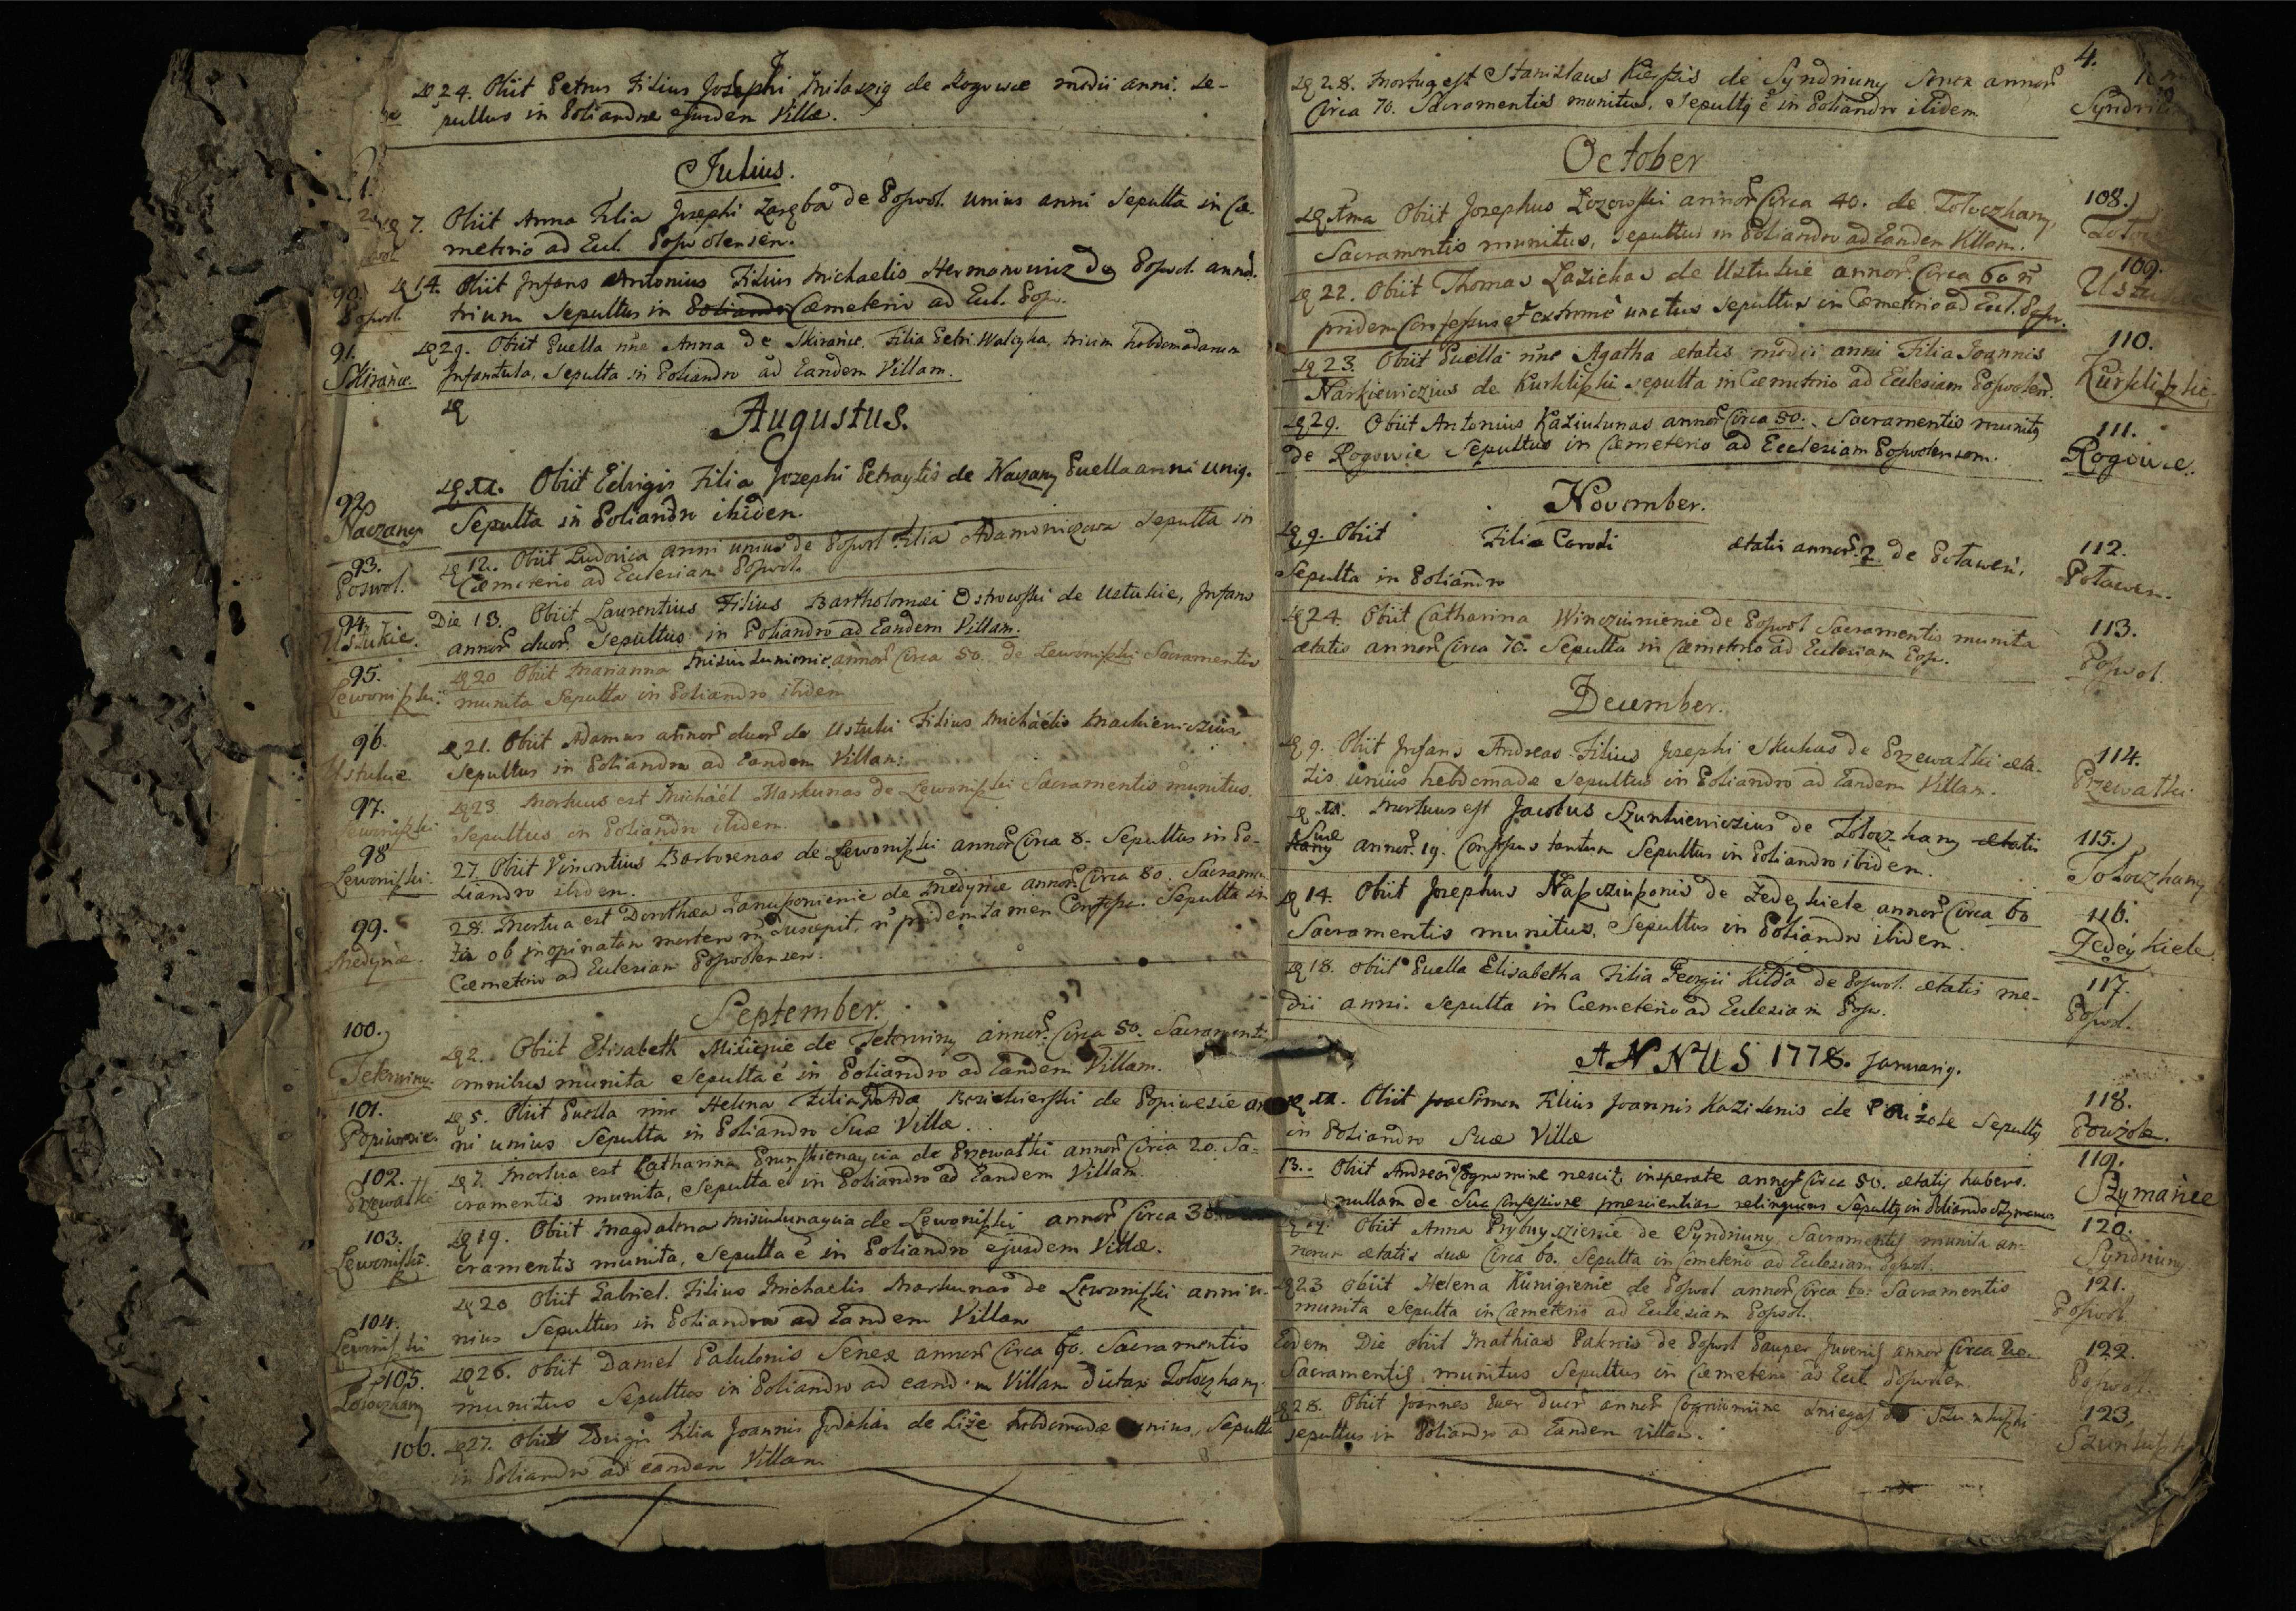 24. Obiit Petrus Filius Josephi de Rogowie medii anni. Se-
pultus in Poliandro ejusdem Villæ.
Julius.
7. Obiit Anna Filia Josephi Zaręba de Poswol. unius anni Sepulta in Cæ-
meterio ad Eccl. Poswolensem.
90. Poswol.
14. Obiit Infans Antonius Filius Michaelis Hermanowicz de Poswol. annor.
trium Sepultus in Cæmeterio ad Eccl. Posw.
91. Skirańce.
29. Obiit Puella nne Anna de Skirańce, Filia Petri Walczka, trium hebdomadarum
Infantula, Sepulta in Poliandro ad Eandem Villam.
Augustus.
92. Naczany
11. Obiit Edvigis Filia Josephi Petraytis de Naczany Puella anni unius.
Sepulta in Poliandro ibidem.
93. Poswol.
12. Obiit Ludovica anni unius de Poswol Filia Adamowiczowa Sepulta in
Cæmeterio ad Ecclesiam Poswol.
94. Ustukie.
Die 13. Obiit Laurentius Filius Bartholomæi Ostrowski de Ustukie, Infans
annor duor Sepultus in Poliandro ad Eandem Villam.
95. Lewoniszki.
20 Obiit Marianna annor Circa 50. de Lewoniszki Sacramentis
munita Sepulta in Poliandro ibidem
96. Ustukie
21. Obiit Adamus annor duor de Ustuki Filius Michäelis Mackiewiczius
Sepultus in Poliandro ad Eandem Villam.
97. Lewoniszki
23 Mortuus est Michäel Markunas de Lewoniszki Sacramentis munitus.
Sepultus in Poliandro ibidem.
98 Lewoniszki.
27. Obiit Vincentius Barborenas de Lewoniszki annor Circa 8. Sepultus in Po-
liandro ibidem.
99. Medynie.
28. Mortua est Dorothæa Januszonienie de Medynie annor Circa 80. Sacramen
ta ob inopinatam mortem n suscepit, n pridem tamen Confessa. Sepulta in
Cæmeterio ad Ecclesiam Poswolensem.
September.
100. Teterwiny.
2. Obiit Elisabeth de Tetirwiny annor. Circa 50. Sacramentis
omnibus munita Sepulta é in Poliandro ad Eandem Villam.
101. Popiwesie.
5. Obiit Puella nne Helena Filia de Popiwesie an
ni unius Sepulta in Poliandro Suæ Villæ.
102. Przewałki
7. Mortua est Catharina de Przewałki annor Circa 20. Sa-
cramentis munita, Sepulta é in Poliandro ad Eandem Villam.
103. Lewoniszki.
19. Obiit Magdalena Misiulunaycia de Lewoniszki annor Circa 30.
cramentis munita, Sepulta é in Poliandro ejusdem Villæ.
104. Lewoniszki
20 Obiit Gabriel. Filius Michaelis Markunas de Lewoniszki anni u-
nius Sepultus in Poliandro ad Eandem Villam
105. Zołoczhany
26. Obiit Daniel Palulonis Senex annor Circa 60. Sacramentis
munitus Sepultus in Poliandro ad eandem Villam dictam Zołoczhany.
106.
27. Obiit Edvigis Filia Joannis de Liże hebdomadæ unius, Sepulta
in Poliandro ad eandem Villam
4.
28. Mortuus est Stanislaus de Syndriuny Senex annor
Circa 70. Sacramentis munitus. Sepultus é in Poliandro ibidem
October
108.
Ima Obiit Josephus Lozowski annor Circa 40. de Zołoczhany,
Sacramentis munitus, Sepultus in Poliandro ad Eandem Villam.
109.
22. Obiit Thomas Lazickas de Ustukie annor. Circa 60 n
pridem Confessus et extreme unctus Sepultus in Cæmeterio ad Eccl. Posw.
110. Kurkliszkie
23. Obiit Puella nne Agatha ætatis medii anni Filia Joannis
Narkiewiczius de Kurkliszki sepulta in Cæmeterio ad Ecclesiam Poswolen.
111. Rogowie.
29. Obiit Antonius Kaziulunas annor Circa 50. Sacramentis munitus
de Rogowie Sepultus in Cæmeterio ad Ecclesiam Poswolensem.
November.
112. Potawen.
9. Obiit Filia Caroli ætatis annor. 2 de Potaweń,
Sepulta in Poliandro
113. Poswol.
24. Obiit Catharina Wincziunienie de Poswol Sacramentis munita
ætatis annor Circa 70. Sepulta in Cæmeterio ad Ecclesiam Posw.
December.
114. Przewałki
9. Obiit Infans Andreas Filius Josephi Skukas de Przewałki æta-
tis unius hebdomadæ Sepultus in Poliandro ad Eandem Villam.
115. Zołoczhany
11. Mortuus est Jacobus Szunkiewiczius de Zołoczhany ætatis
Suæ annor. 19. Confessus tantum Sepultus in Poliandro ibidem.
116. Zedeykiele.
14. Obiit Josephus de Zedeykiele annor Circa 60
Sacramentis munitus, Sepultus in Poliandro ibidem.
117. Poswol.
18. Obiit Puella Elisabetha Filia Georgii Kilda de Poswol. ætatis me-
dii anni. Sepulta in Cæmeterio ad Ecclesiam Posw.
ANNUS 1778. Januarij.
118. Powżole.
11. Obiit Simon Filius Joannis Kazilenis de Powżole Sepultus
in Poliandro Suæ Villæ
119. Szymańce
13. Obiit Andreas Cognomine nescit, insperate annor Circa 50. ætatis habens.
nullam de Sua Confessione præscientiam relinquens Sepultus in Poliandro Szymance
120. Syndriuny
Obiit Anna de Syndriuny Sacramentis munita an-
norum ætatis suæ Circa 60. Sepulta in Cæmeterio ad Ecclesiam Poswol.
121. Poswol.
23 Obiit Helena Kunigienie de Poswol annor Circa 60. Sacramentis
munita Sepulta in Cæmeterio ad Ecclesiam Poswol.
122. Poswol.
Eodem Die Obiit Mathias Paknis de Poswol Pauper Juvenis annor Circa 20.
Sacramentis munitus Sepultus in Cæmeterio ad Eccl Poswolen.
123.
28. Obiit Joannes Puer duor annor Cognomine
Sepultus in Poliandro ad Eandem villam.